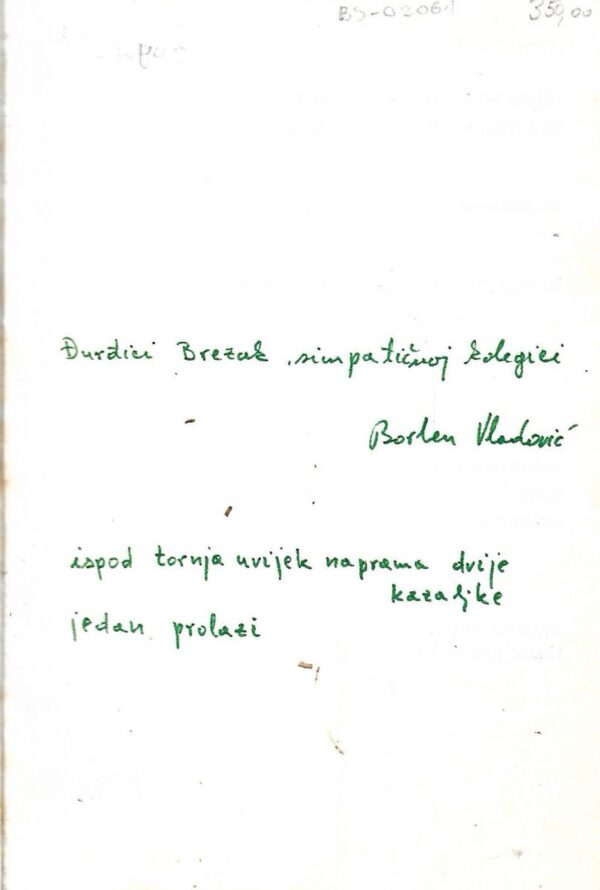 BS-02061 350,00
Đurđici Brezak, simpatičnoj kolegici
Borben Vladović
ispod tornja uvijek naprama dvije
kazaljke
jedan prolazi